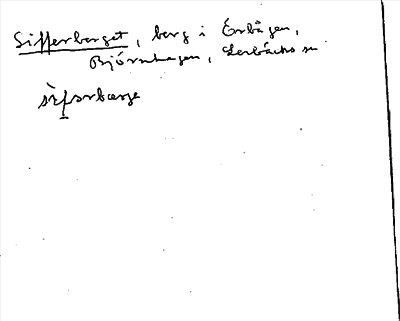 Sifferberget, berg i Enbågen,
Björnhagen, Lerbäcks sn
sìfərbærge